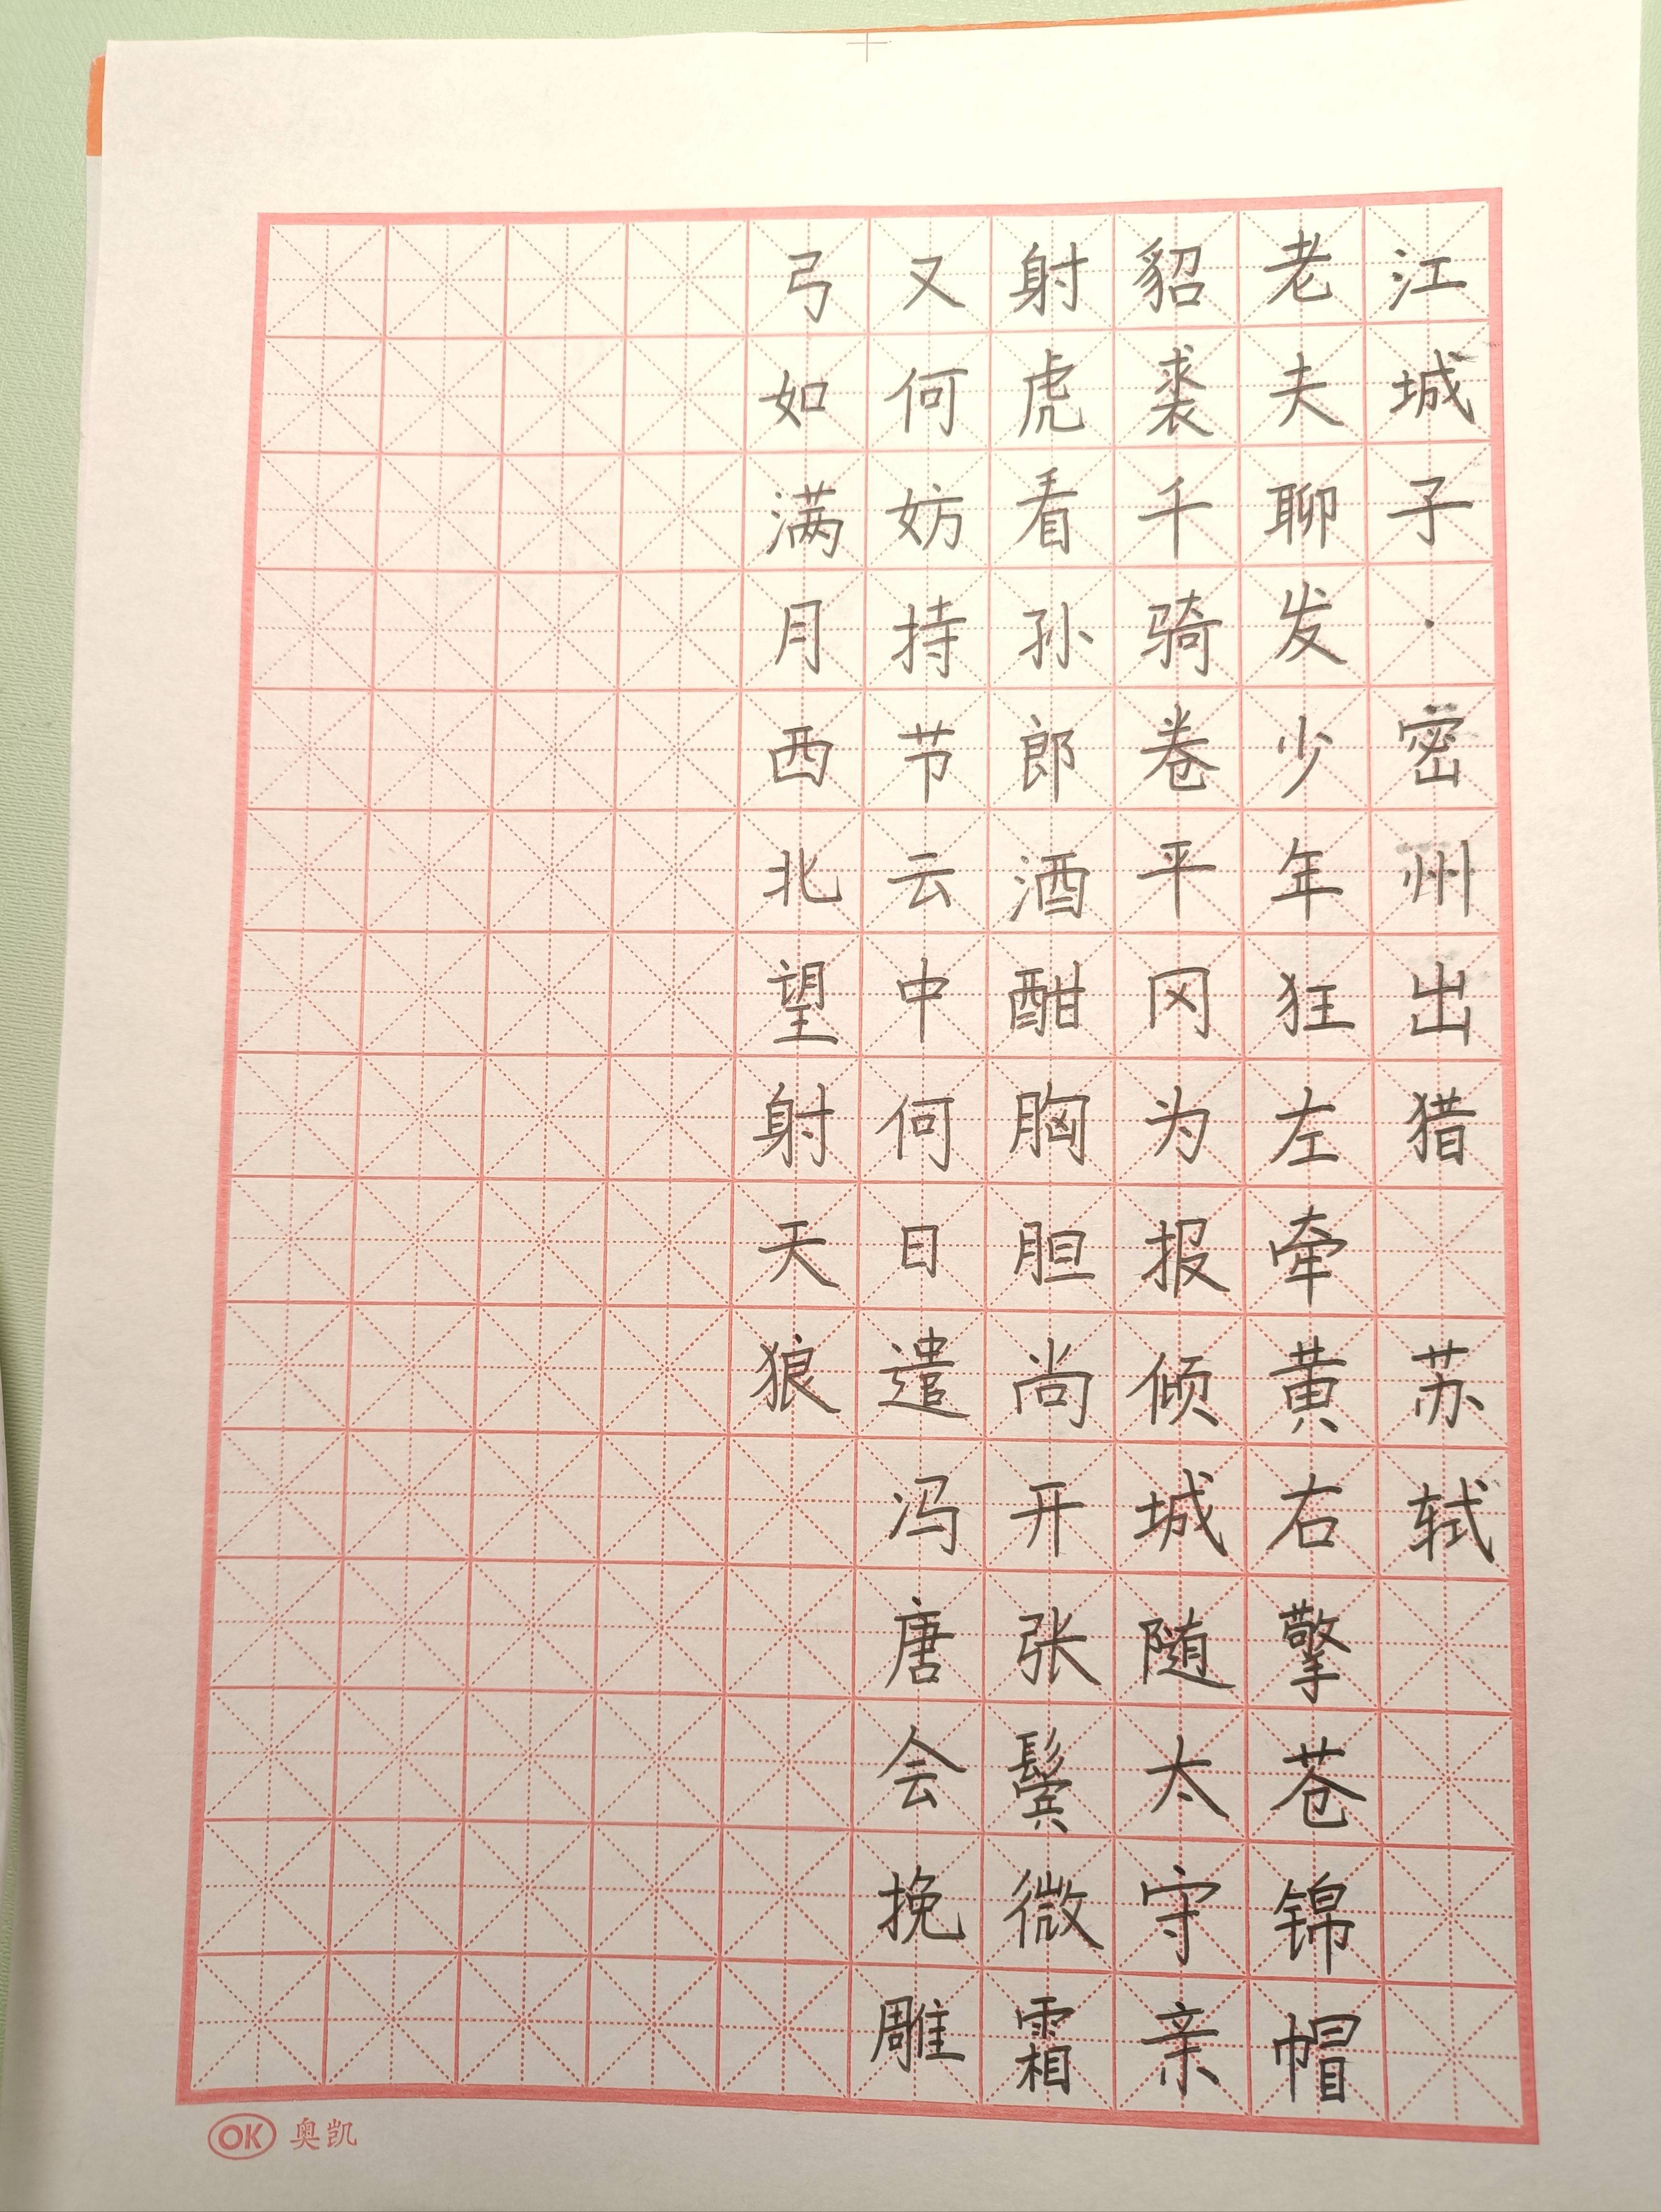 江城子·密州出猎 苏轼
老夫聊发少年狂左牵黄右擎苍锦帽
貂裘千骑卷平冈为报倾城随太守亲
射虎看孙郎酒酣胸胆尚开张鬓微霜
又何妨持节云中何日遣冯唐会挽雕
弓如满月西北望射天狼
OK 奥凯